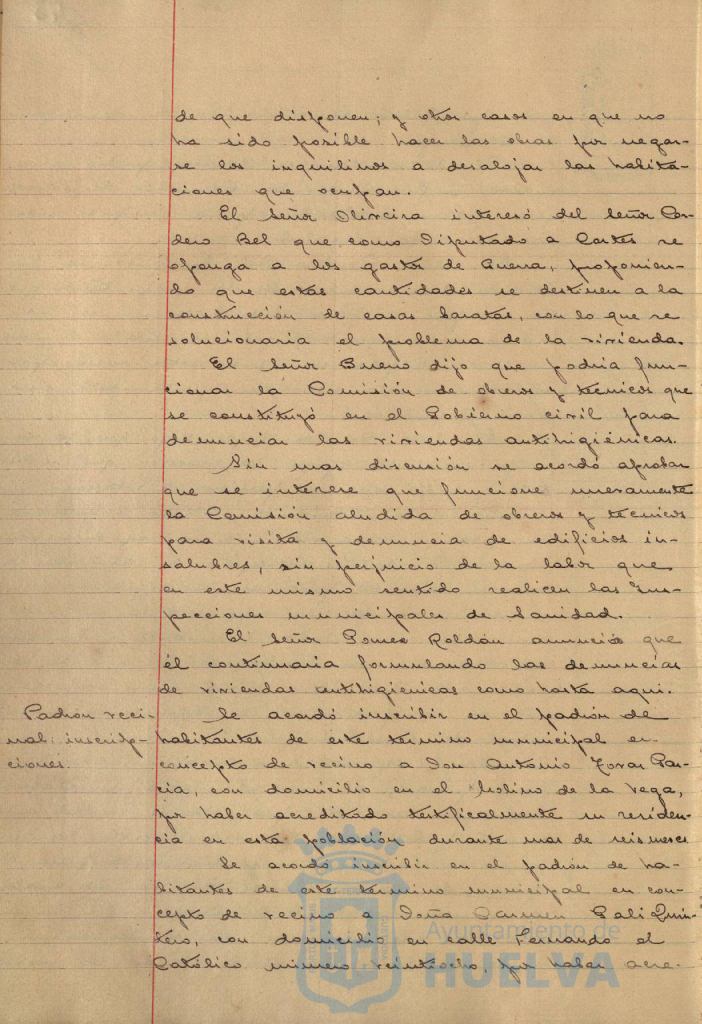 de que disponen; y otros casos en que no
ha sido posible hacer las obras por negar-
se los inquilinos a desalojar las habita-
ciones que ocupan.
El Señor Oliveira interesó del Señor Cor-
dero Bel que como Diputado a Cortes se
oponga a los gastos de Guerra, proponien-
do que estas cantidades se destinen a la
construcción de casas baratas, con lo que se
solucionaria el problema de la vivienda.
El Señor Bueno dijo que podria fun-
cionar la Comisión de obreros y técnicos que
se constituyó en el Gobierno civil para
denunciar las viviendas antihigiénicas.
Sin mas discusión se acordó aprobar
que se interese que funcione nuevamente
la Comisión aludida de obreros y técnicos
para visita y denuncia de edificios in-
salubres, sin perjuicio de la labor que
en este mismo sentido realicen las Ins-
pecciones municipales de Sanidad.
El Señor Gomez Roldán anunció que
él continuaria formulando las denuncias
de viviendas antihigienicas como hasta aqui.
Padron veci-
nal: inscrip-
ciones.
Se acordó inscribir en el padrón de
habitantes de este termino municipal en
concepto de vecino a Don Antonio Tovar Gar-
cia, con domicilio en el Molino de la Vega,
por haber acreditado testificalmente su residen-
cia en esta población durante mas de seis meses
Se acordó inscribir en el padrón de ha-
bitantes de este termino municipal en con-
cepto de vecino a Doña Carmen Gali Quin-
tero, con domicilio en calle Fernando el
Católico número veintiocho, por haber acre-
Ayuntamiento de
HUELVA